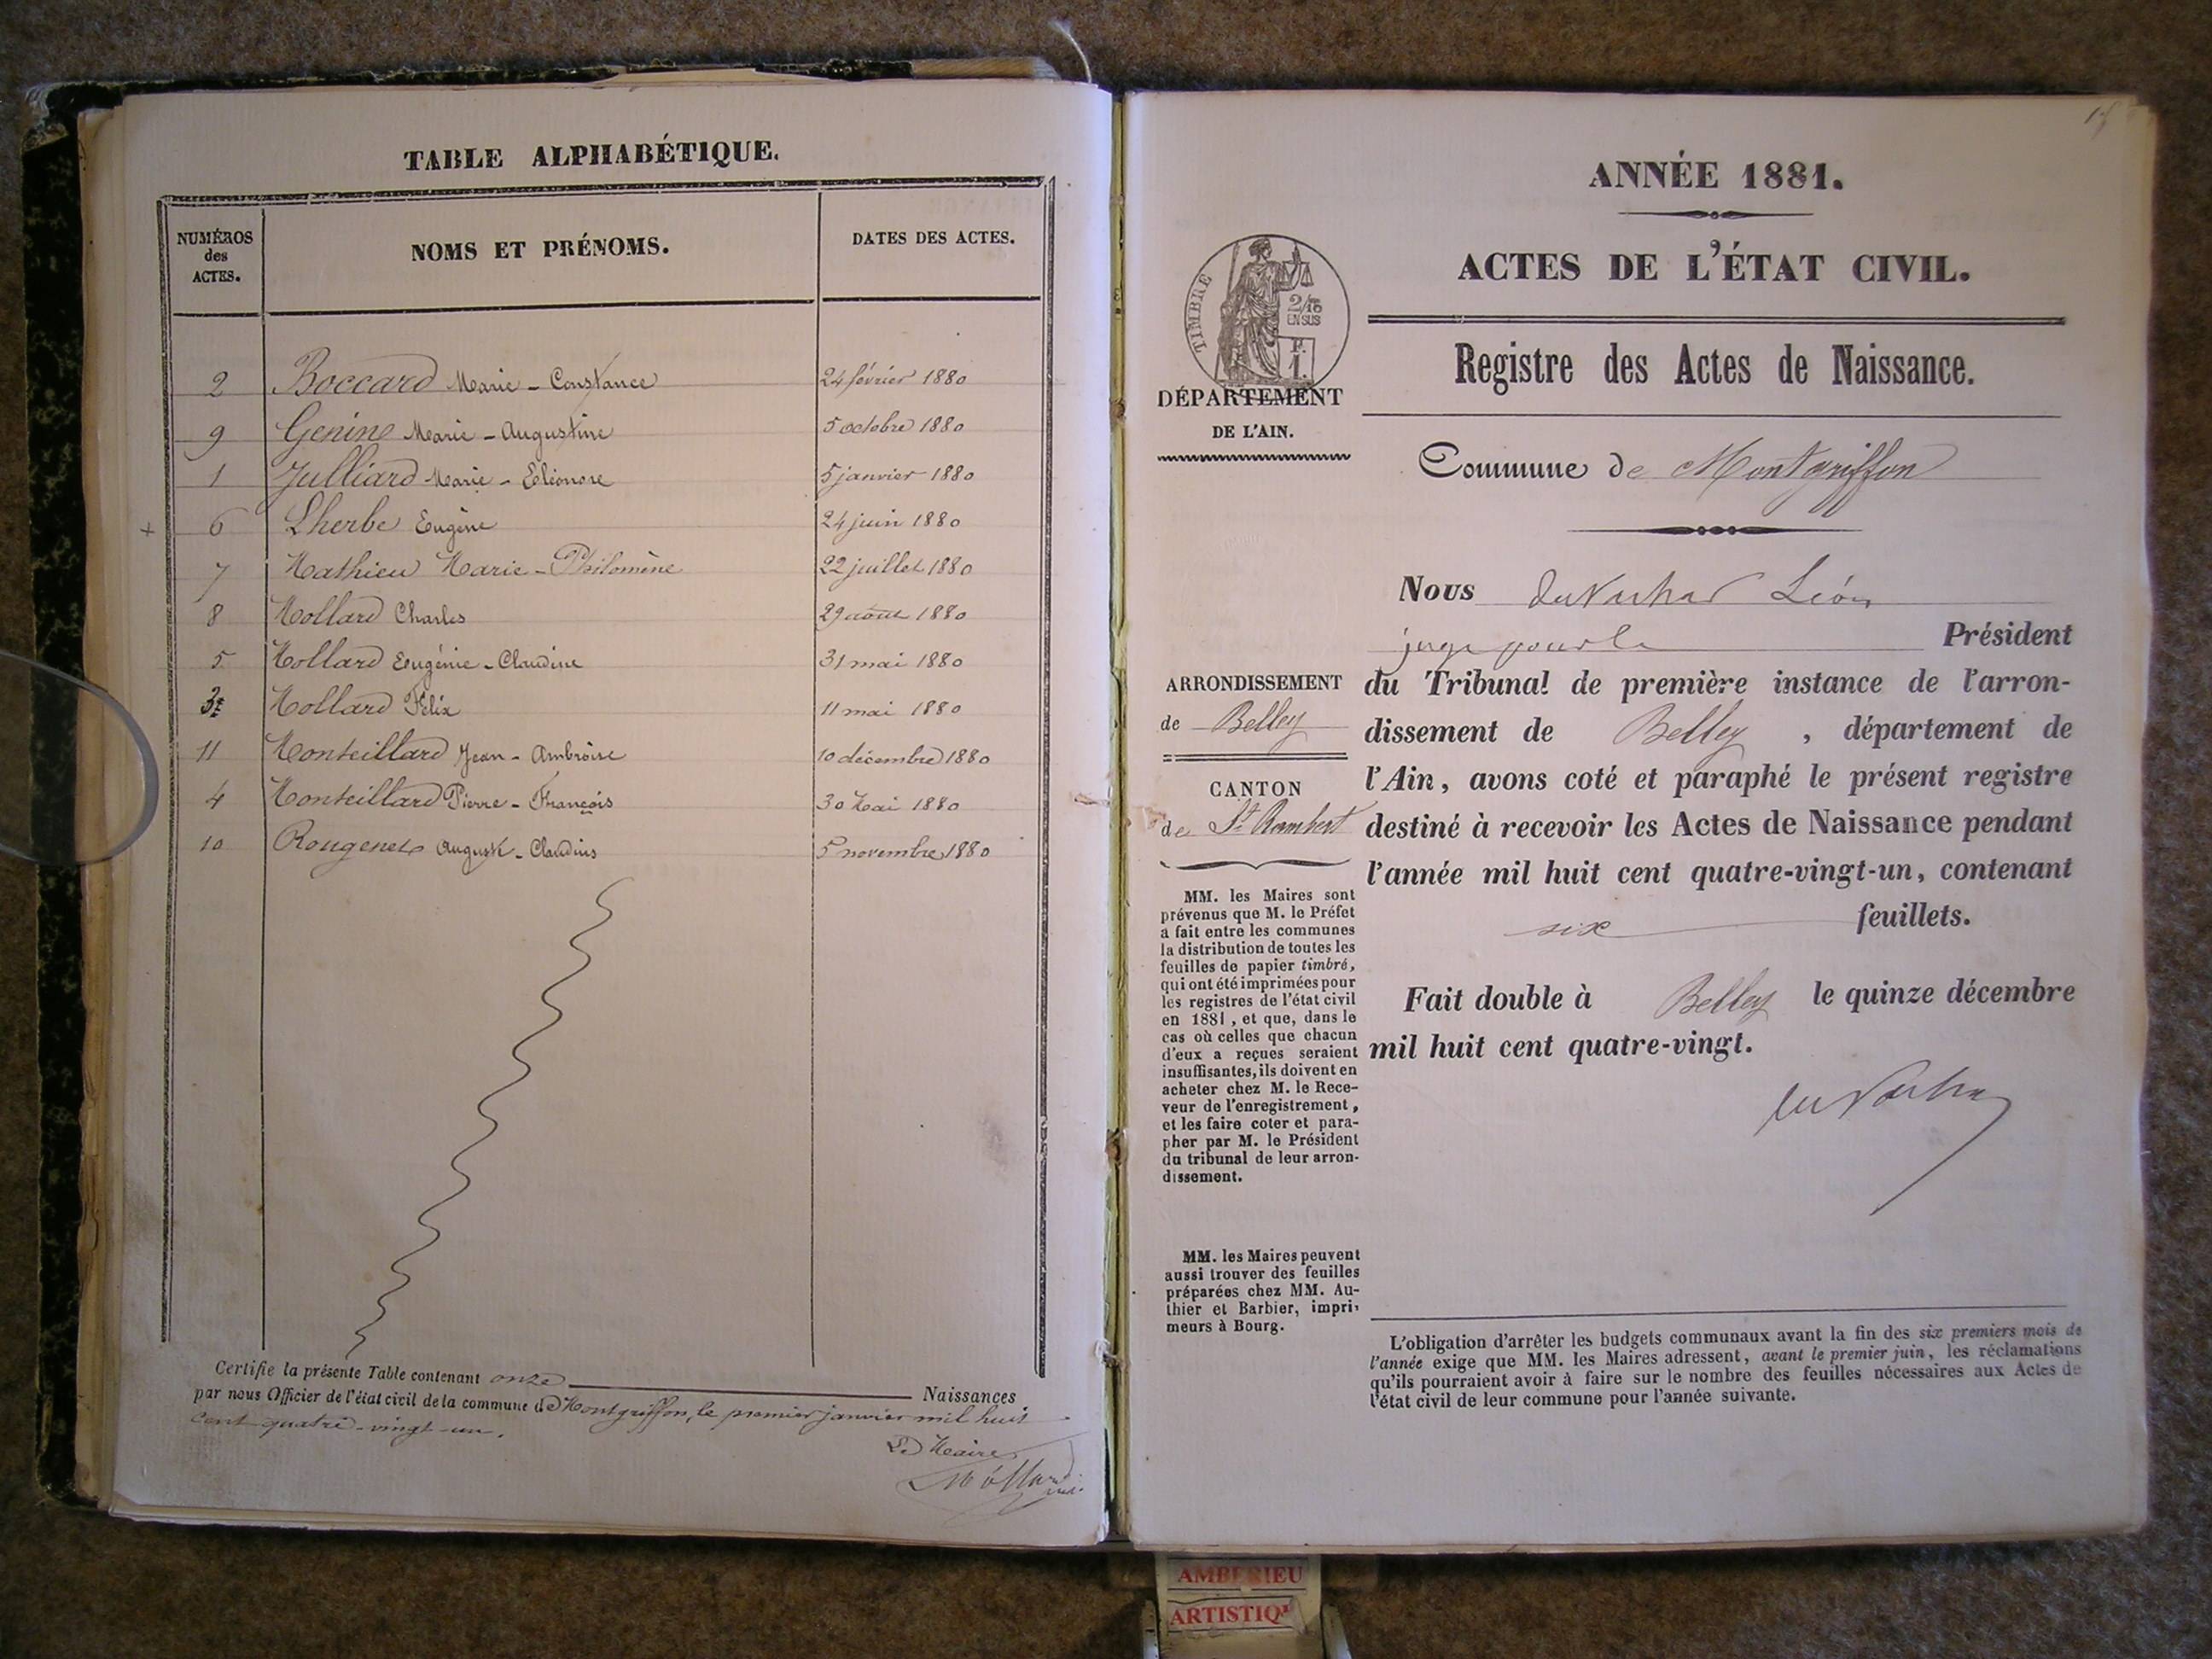 TABLE ALPHABÉTIQUE.
NUMÉROS des ACTES.
NOMS ET PRÉNOMS.
DATES DES ACTES.
2 Boccard Marie - Constance 24 février 1880
9 Genine Marie - Augustine 5 octobre 1880
1 Julliard Marie - Eléonore 5 janvier 1880
+ 6 Lherbe Eugène 24 juin 1880
7 Mathieu Marie - Philomène 22 juillet 1880
8 Mollard Charles 29 août 1880
5 Mollard Eugénie - Claudine 31 mai 1880
3 Mollard Félix 11 mai 1880
11 Monteillard Jean - Ambroise 10 décembre 1880
4 Monteillard Pierre - François 30 Mai 1880
10 Rougenet Auguste - Claudius 5 novembre 1880
Certifie la présente Table contenant onze Naissances
par nous Officier de l'état civil de la commune de Montgriffon, le premier janvier mil huit
cent quatre-vingt-un.
Le Maire
Mollard
ANNÉE 1881.
ACTES DE L'ÉTAT CIVIL.
Registre des Actes de Naissance.
TIMBRE
2/10
EN SUS
F.
1.
DÉPARTEMENT
DE L'AIN.
Commune de Montgriffon
Nous Léon
juge pour le Président
du Tribunal de première instance de l'arron-
dissement de Belley, département de
l'Ain, avons coté et paraphé le présent registre
destiné à recevoir les Actes de Naissance pendant
l'année mil huit cent quatre-vingt-un, contenant
six feuillets.
Fait double à Belley le quinze décembre
mil huit cent quatre-vingt.
ARRONDISSEMENT
de Belley
CANTON
de St Rambert
MM. les Maires sont
prévenus que M. le Préfet
a fait entre les communes
la distribution de toutes les
feuilles de papier timbré,
qui ont été imprimées pour
les registres de l'état civil
en 1881, et que, dans le
cas où celles que chacun
d'eux a reçues seraient
insuffisantes, ils doivent en
acheter chez M. le Rece-
veur de l'enregistrement,
et les faire coter et para-
pher par M. le Président
du tribunal de leur arron-
dissement.
MM. les Maires peuvent
aussi trouver des feuilles
préparées chez MM. Au-
thier et Barbier, impri-
meurs à Bourg.
L'obligation d'arrêter les budgets communaux avant la fin des six premiers mois de
l'année exige que MM. les Maires adressent, avant le premier juin, les réclamations
qu'ils pourraient avoir à faire sur le nombre des feuilles nécessaires aux Actes de
l'état civil de leur commune pour l'année suivante.
AMBERIEU
ARTISTIQ